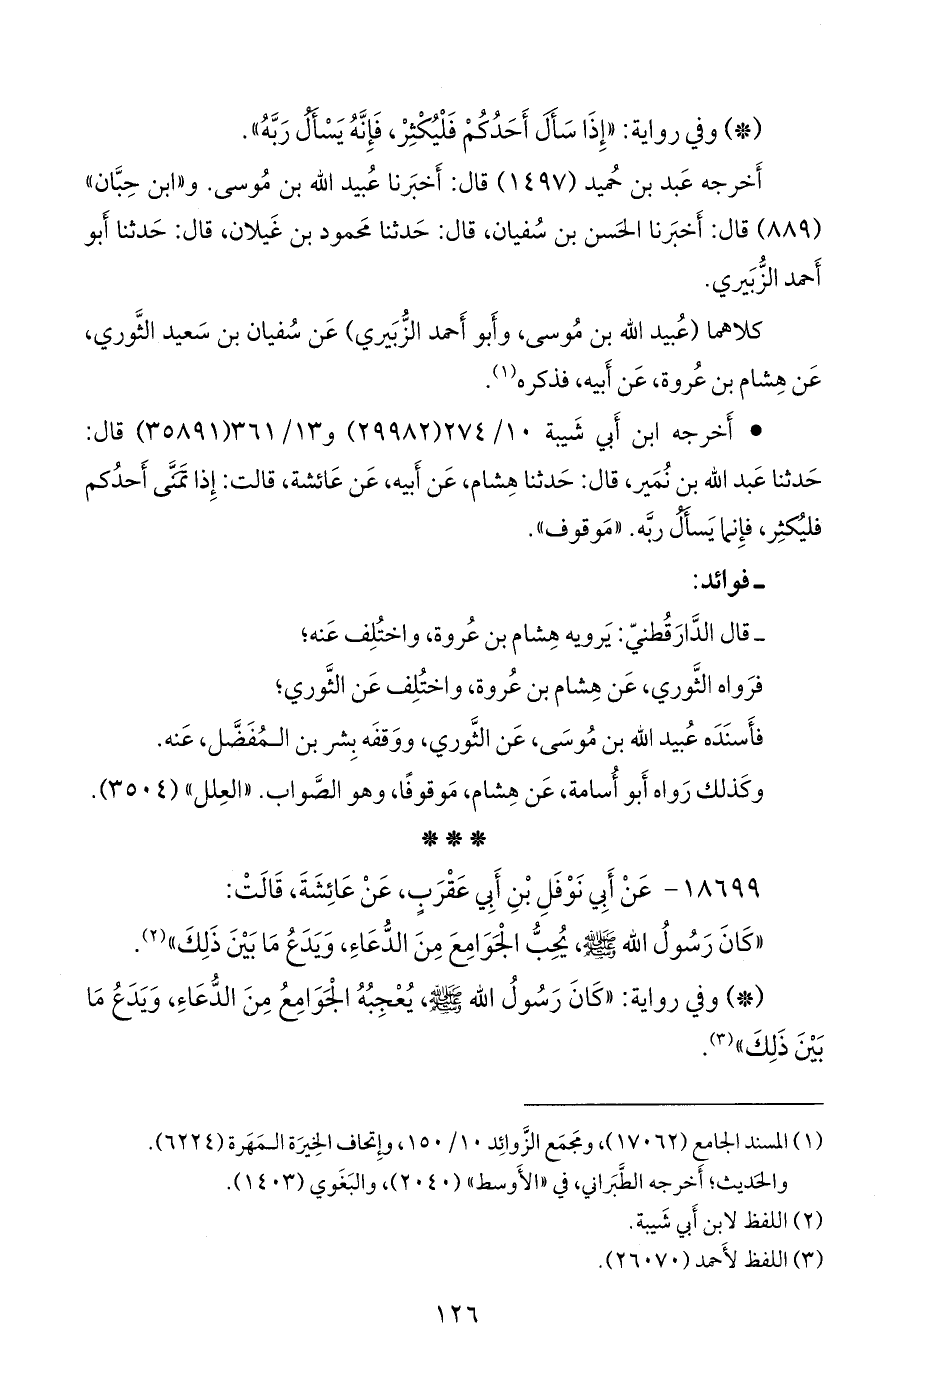 (*) وفي رواية: «إِذَا سَأَلَ أَحَدُكُمْ فَلْيُكْثِرْ، فَإِنَّهُ يَسْأَلُ رَبَّهُ».
أَخرجه عَبد بن حُميد (١٤٩٧) قال: أَخبَرنا عُبيد الله بن مُوسى. و«ابن حِبَّان»
(٨٨٩) قال: أَخبَرنا الحَسن بن سُفيان، قال: حَدثنا محمود بن غَيلان، قال: حَدثنا أَبو
أَحمد الزُّبَيري.
كلاهما (عُبيد الله بن مُوسى، وأَبو أَحمد الزُّبَيري) عَن سُفيان بن سَعيد الثَّوري،
عَن هِشام بن عُروة، عَن أَبيه، فذكره(١).
• أَخرجه ابن أَبي شَيبة ١٠/ ٢٧٤(٢٩٩٨٢) و١٣/ ٣٦١(٣٥٨٩١) قال:
حَدثنا عَبد الله بن نُمَير، قال: حَدثنا هِشام، عَن أَبيه، عَن عَائشة، قالت: إِذا تمَنَّى أَحدُكم
فليُكثِر، فإِنما يَسأَلُ ربَّه. «مَوقوف».
ـ فوائد:
ـ قال الدَّارَقُطنيّ: يَرويه هِشام بن عُروة، واختُلِف عَنه؛
فرَواه الثَّوري، عَن هِشام بن عُروة، واختُلِف عَن الثَّوري؛
فأَسنَدَه عُبيد الله بن مُوسَى، عَن الثَّوري، ووَقفَه بِشر بن الـمُفَضَّل، عَنه.
وكَذلك رَواه أَبو أُسامة، عَن هِشام، مَوقوفًا، وهو الصَّواب. «العِلل» (٣٥٠٤).
* * *
١٨٦٩٩- عَنْ أَبِي نَوْفَلِ بْنِ أَبِي عَقْرَبٍ، عَنْ عَائِشَةَ، قَالَتْ:
«كَانَ رَسُولُ الله ﷺ، يُحِبُّ الْجَوَامِعَ مِنَ الدُّعَاءِ، وَيَدَعُ مَا بَيْنَ ذَلِكَ»(٢).
(*) وفي رواية: «كَانَ رَسُولُ الله ﷺ، يُعْجِبُهُ الْجَوَامِعُ مِنَ الدُّعَاءِ، وَيَدَعُ مَا
بَيْنَ ذَلِكَ»(٣).
(١) المسند الجامع (١٧٠٦٢)، ومَجمَع الزَّوائِد ١٠/ ١٥٠، وإتحاف الخِيرَة الـمَهَرة (٦٢٢٤).
والحَديث؛ أَخرجه الطَّبَراني، في «الأَوسط» (٢٠٤٠)، والبَغَوي (١٤٠٣).
(٢) اللفظ لابن أَبي شَيبة.
(٣) اللفظ لأَحمد (٢٦٠٧٠).
١٢٦